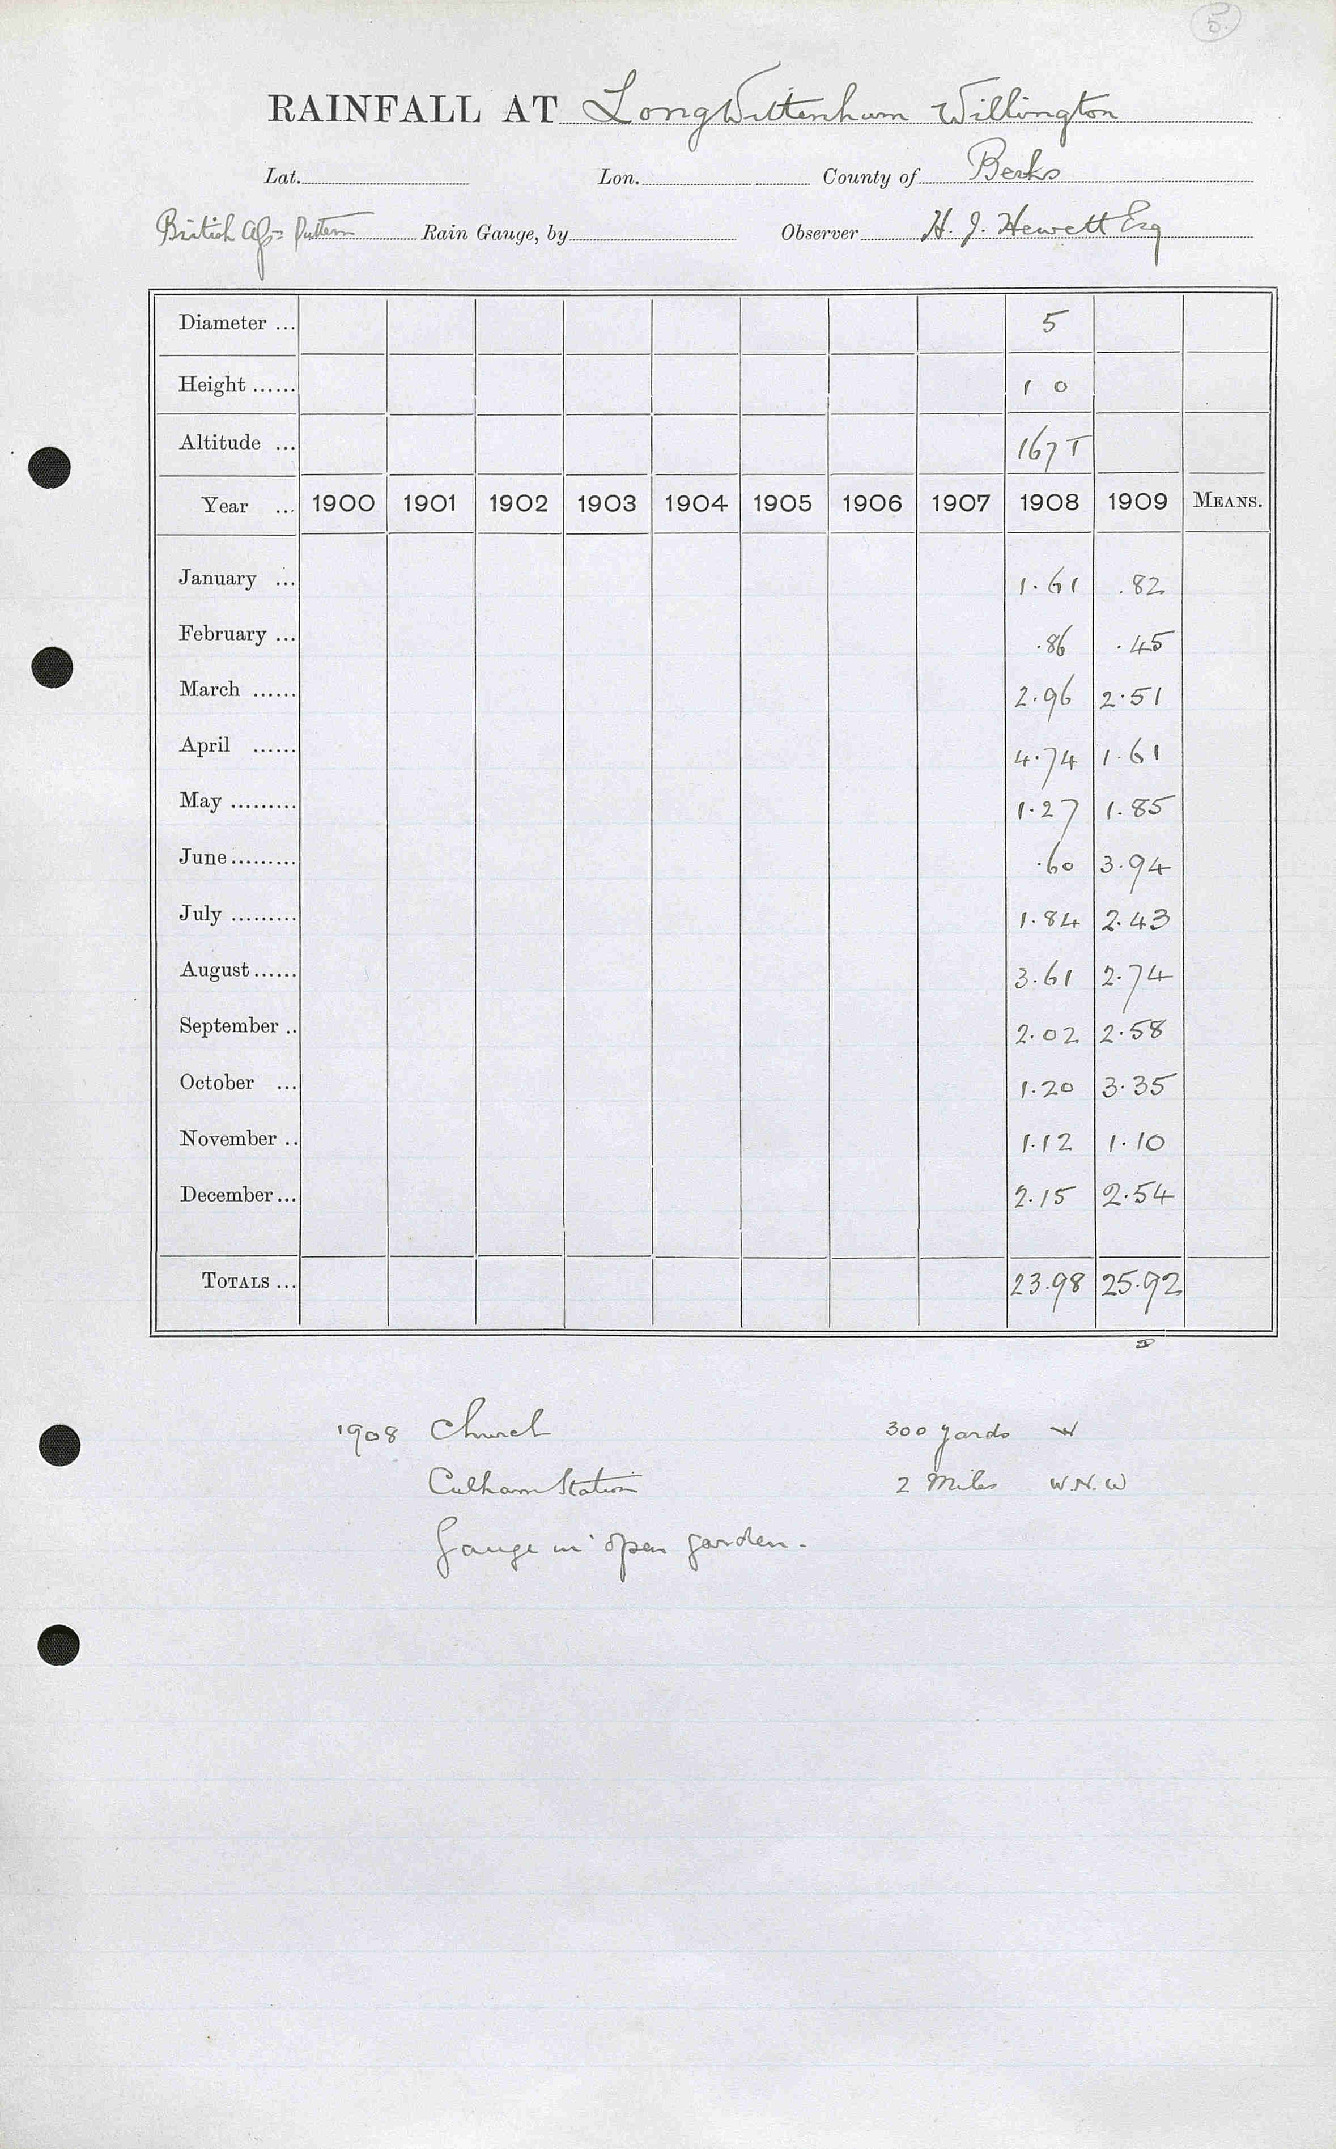 5.
RAINFALL AT Long Wittenham Willington
Lat. Lon. County of Berks
British Assn Pattern Rain Gauge, by Observer H. J. Hewett Esq
Diameter ... 5
Height ...... 1 0
Altitude ... 167 T
Year ... 1900 1901 1902 1903 1904 1905 1906 1907 1908 1909 MEANS.
January ... 1.61 .82
February ... .86 .45
March ...... 2.96 2.51
April ...... 4.74 1.61
May ......... 1.27 1.85
June ......... .60 3.94
July ......... 1.84 2.43
August ...... 3.61 2.74
September .. 2.02 2.58
October ... 1.20 3.35
November .. 1.12 1.10
December ... 2.15 2.54
TOTALS ... 23.98 25.92
1908 Church 300 yards W
Culham Station 2 Miles W.N.W
Gauge in open garden.